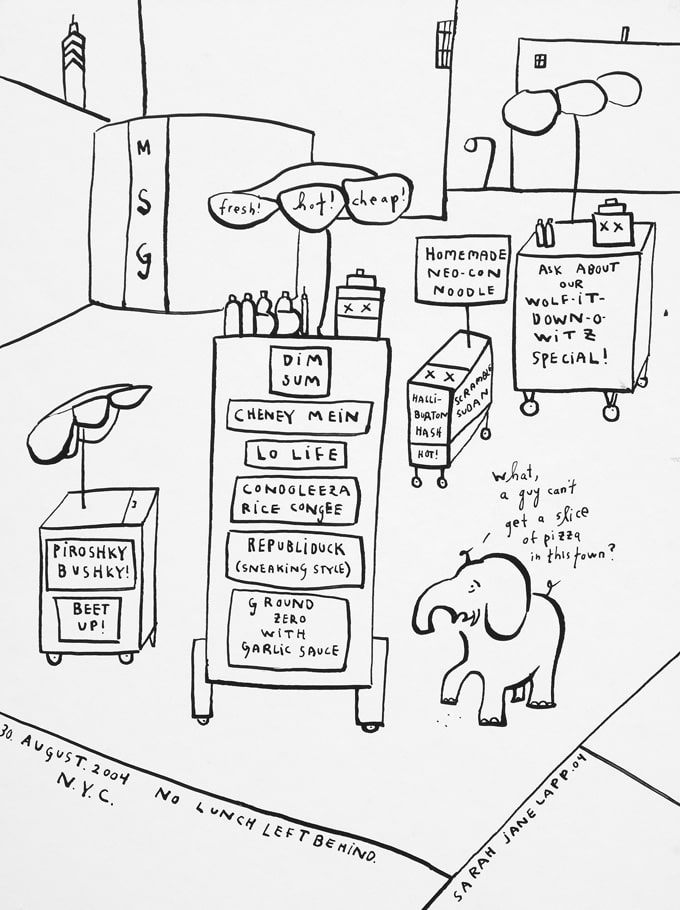 M
S
G
fresh! hot! cheap!
DIM
SUM
CHENEY MEIN
LO LIFE
CONDOLEEZA
RICE CONGEE
REPUBLIDUCK
(SNEAKING STYLE)
GROUND
ZERO
WITH
GARLIC SAUCE
HOMEMADE
NEO-CON
NOODLE
HALLI-
BURTON
HASH
HOT!
SCRAMBLE
SUDAN
ASK ABOUT
OUR
WOLF-IT-
DOWN-O-
WITZ
SPECIAL!
PIROSHKY
BUSHKY!
BEET
UP!
What,
a guy can't
get a slice
of pizza
in this town?
30. AUGUST. 2004
N.Y.C.
NO LUNCH LEFT BEHIND.
SARAH JANE LAPP.04